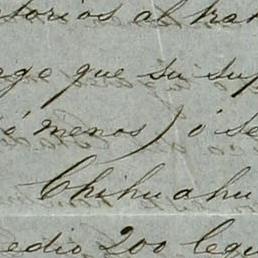 torios al tra
ge que su sup
ó menos) ó se
Chihuahu
edio 200 legu